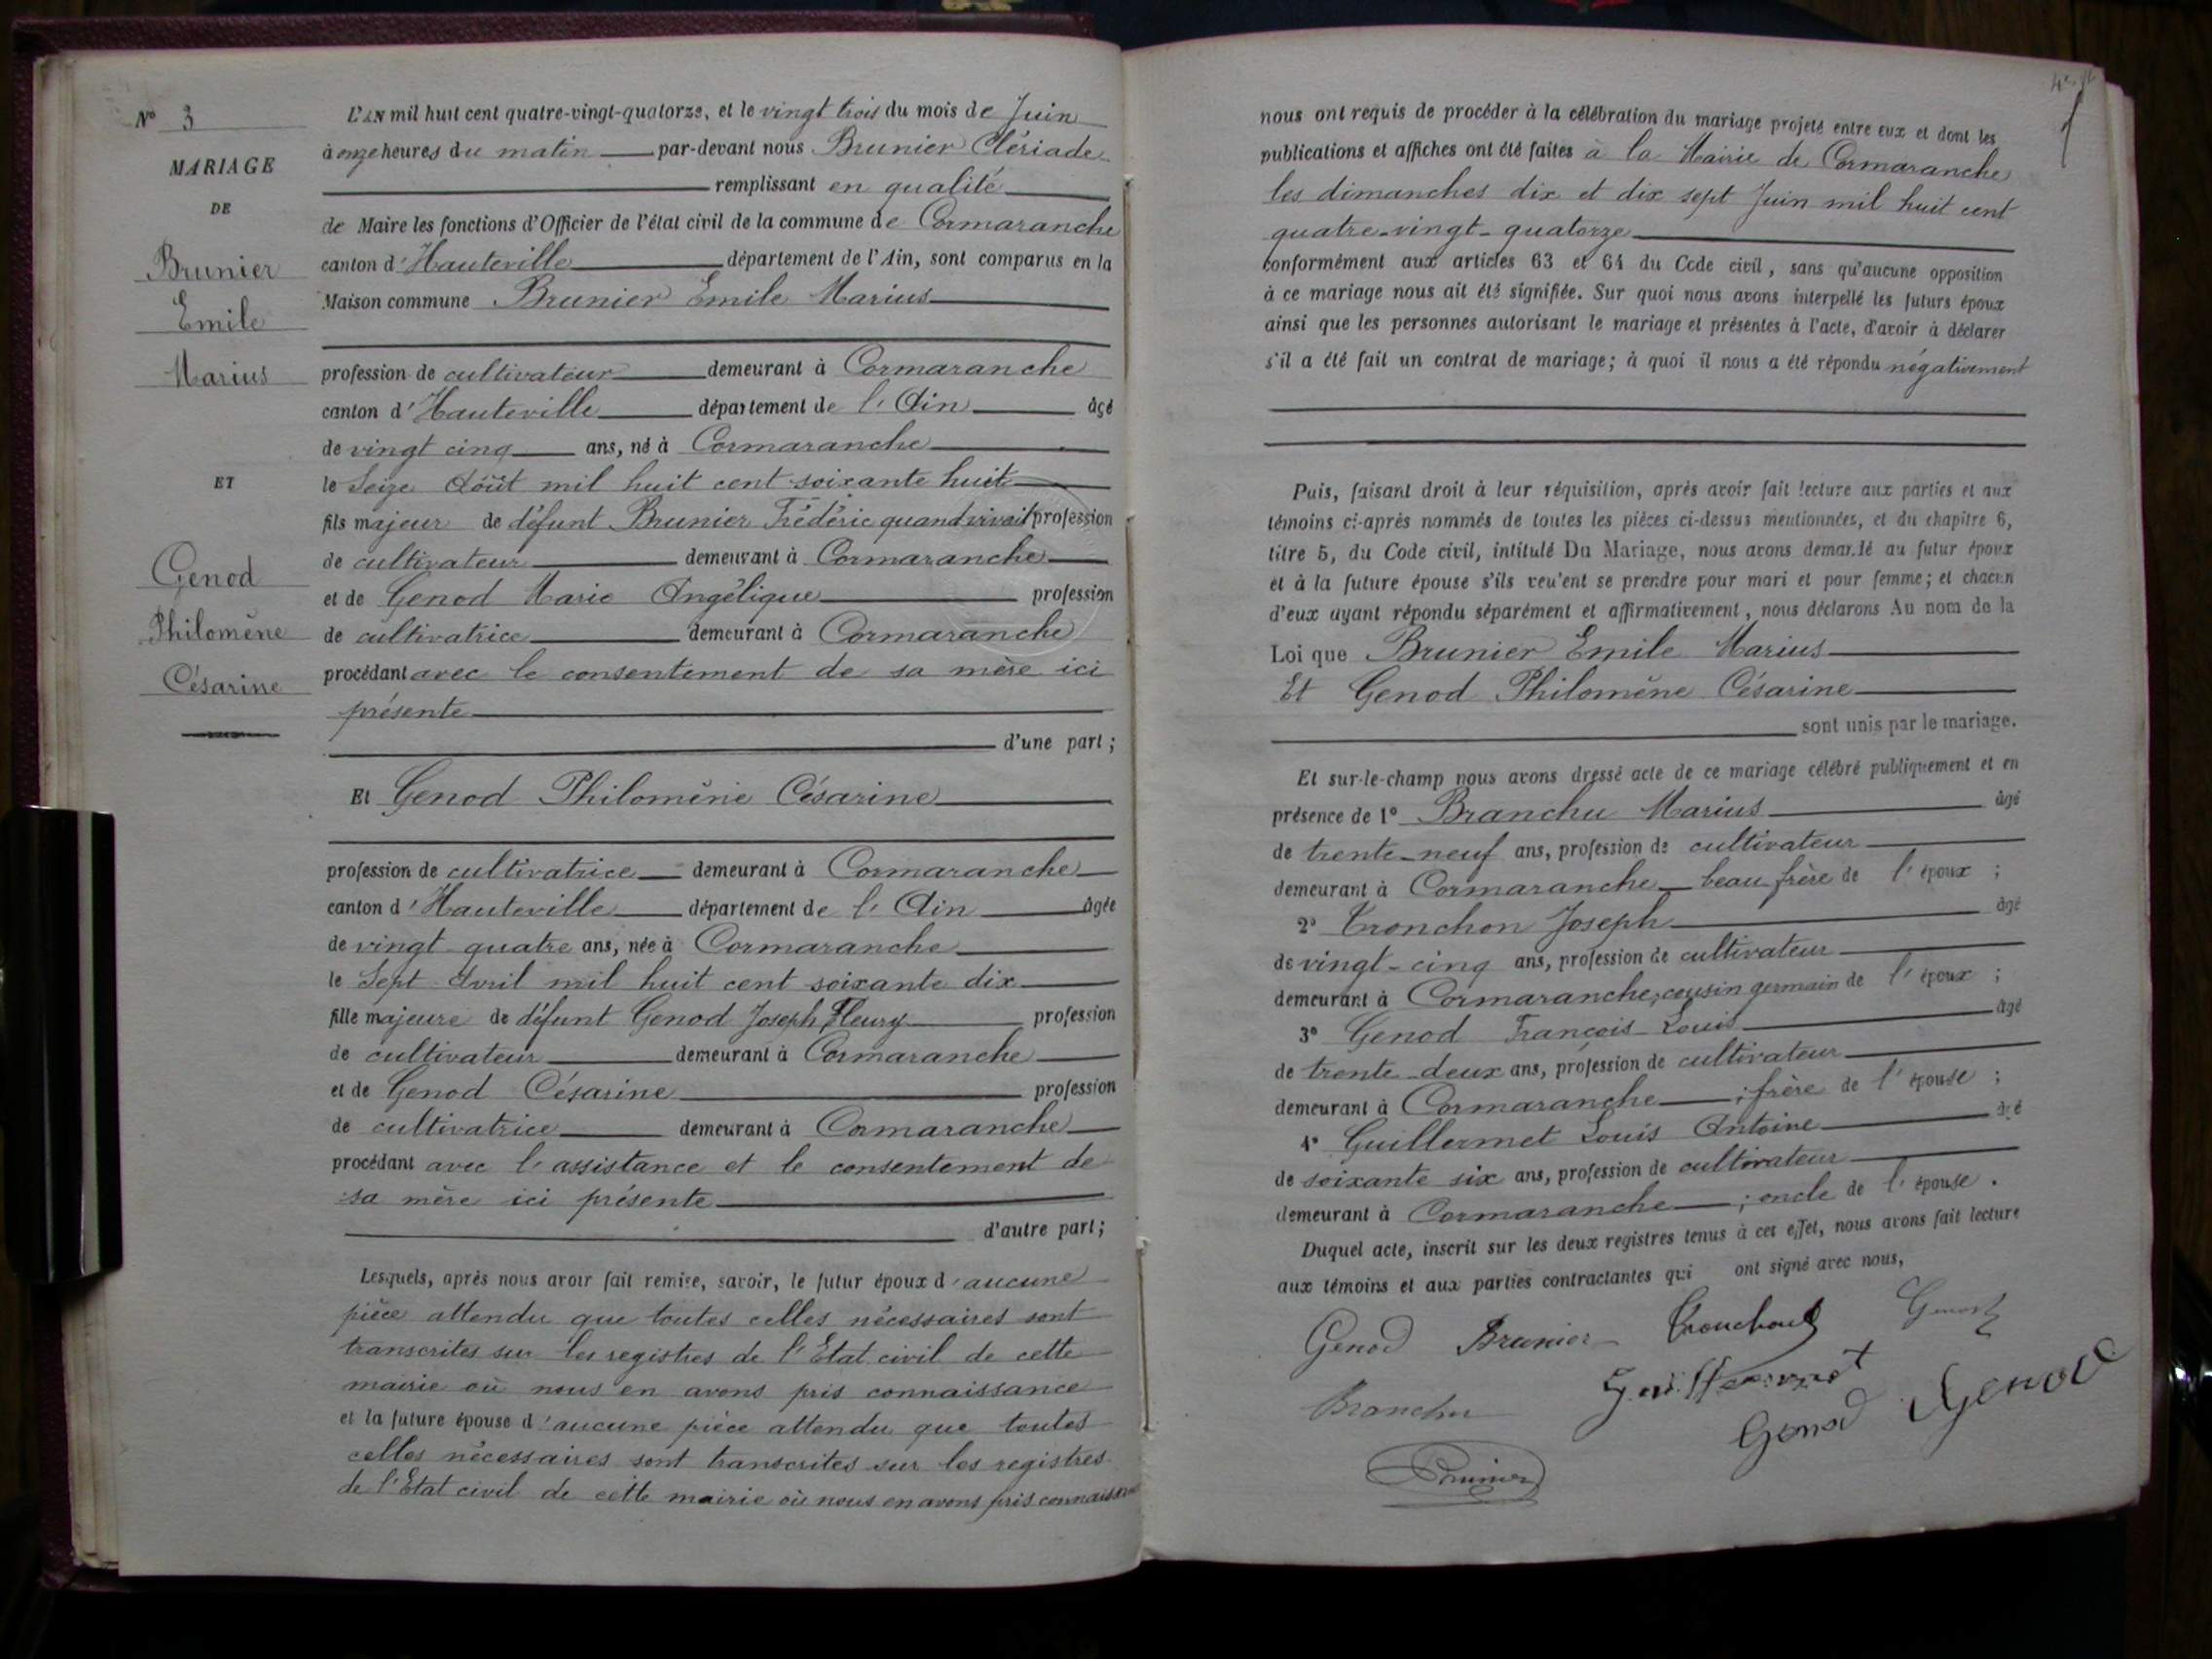 N° 3
MARIAGE
DE
Brunier
Emile
Marius
ET
Genod
Philomène
Césarine
L'AN mil huit cent quatre-vingt-quatorze, et le vingt trois du mois de Juin
à onze heures du matin par-devant nous Brunier Clériade
remplissant en qualité
de Maire les fonctions d'Officier de l'état civil de la commune de Cormaranche
canton d'Hauteville département de l'Ain, sont comparus en la
Maison commune Brunier Emile Marius
profession de cultivateur demeurant à Cormaranche
canton d'Hauteville département de l'Ain âgé
de vingt cinq ans, né à Cormaranche
le Seize Août mil huit cent soixante huit
fils majeur de défunt Brunier Frédéric quand vivait profession
de cultivateur demeurant à Cormaranche
et de Genod Marie Angélique profession
de cultivatrice demeurant à Cormaranche
procédant avec le consentement de sa mère ici
présente
d'une part ;
Et Genod Philomène Césarine
profession de cultivatrice demeurant à Cormaranche
canton d'Hauteville département de l'Ain âgée
de vingt quatre ans, née à Cormaranche
le Sept Avril mil huit cent soixante dix
fille majeure de défunt Genod Joseph Fleury profession
de cultivateur demeurant à Cormaranche
et de Genod Césarine profession
de cultivatrice demeurant à Cormaranche
procédant avec l'assistance et le consentement de
sa mère ici présente
d'autre part ;
Lesquels, après nous avoir fait remise, savoir, le futur époux d'aucune
pièce attendu que toutes celles nécessaires sont
transcrites sur les registres de l'Etat civil de cette
mairie où nous en avons pris connaissance
et la future épouse d'aucune pièce attendu que toutes
celles nécessaires sont transcrites sur les registres
de l'Etat civil de cette mairie où nous en avons pris connaissance
nous ont requis de procéder à la célébration du mariage projeté entre eux et dont les
publications et affiches ont été faites à la Mairie de Cormaranche
les dimanches dix et dix sept Juin mil huit cent
quatre-vingt-quatorze
conformément aux articles 63 et 64 du Code civil, sans qu'aucune opposition
à ce mariage nous ait été signifiée. Sur quoi nous avons interpellé les futurs époux
ainsi que les personnes autorisant le mariage et présentes à l'acte, d'avoir à déclarer
s'il a été fait un contrat de mariage; à quoi il nous a été répondu négativement
Puis, faisant droit à leur réquisition, après avoir fait lecture aux parties et aux
témoins ci-après nommés de toutes les pièces ci-dessus mentionnées, et du chapitre 6,
titre 5, du Code civil, intitulé Du Mariage, nous avons demandé au futur époux
et à la future épouse s'ils veulent se prendre pour mari et pour femme; et chacun
d'eux ayant répondu séparément et affirmativement, nous déclarons Au nom de la
Loi que Brunier Emile Marius
Et Genod Philomène Césarine
sont unis par le mariage.
Et sur-le-champ nous avons dressé acte de ce mariage célébré publiquement et en
présence de 1° Branchu Marius âgé
de trente-neuf ans, profession de cultivateur
demeurant à Cormaranche beau frère de l'époux ;
2° Tronchon Joseph âgé
de vingt-cinq ans, profession de cultivateur
demeurant à Cormaranche, cousin germain de l'époux ;
3° Genod François Louis âgé
de trente deux ans, profession de cultivateur
demeurant à Cormaranche ; frère de l'épouse ;
4° Guillermet Louis Antoine âgé
de soixante six ans, profession de cultivateur
demeurant à Cormaranche ; oncle de l'épouse .
Duquel acte, inscrit sur les deux registres tenus à cet effet, nous avons fait lecture
aux témoins et aux parties contractantes qui ont signé avec nous,
Genod Brunier Tronchon Genod
Branchu Guillermet Genod Genod
Brunier